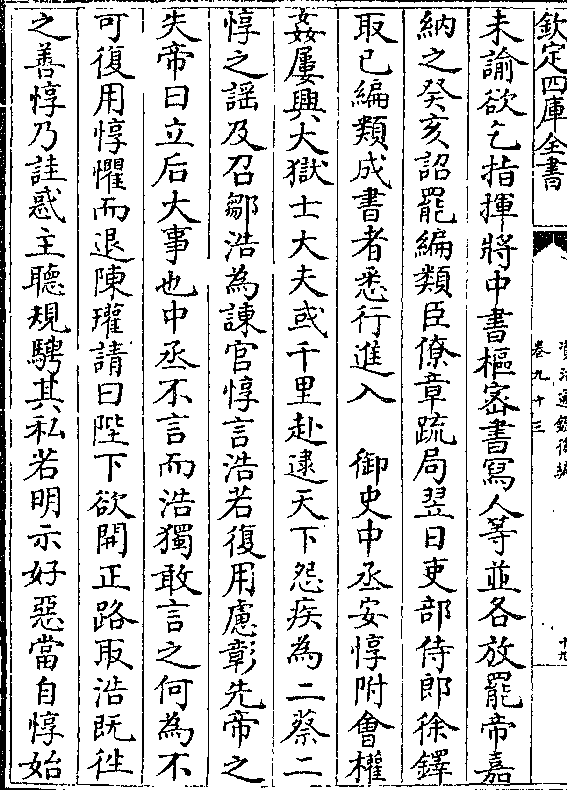 欽定四庫全書
資治通鑑後編
卷九十三
十九
未諭欲乞指揮將中書樞宻書寫人等並各放罷帝嘉
納之癸亥詔罷編類臣僚章疏局翌日吏部侍郎徐鐸
取已編類成書者悉行進入　御史中丞安惇附會權
姦屢興大獄士大夫或千里赴逮天下怨疾為二蔡二
惇之謡及召鄒浩為諫官惇言浩若復用慮彰先帝之
失帝曰立后大事也中丞不言而浩獨敢言之何為不
可復用惇懼而退陳瓘請曰陛下欲開正路取浩既徃
之善惇乃詿惑主聽規騁其私若明示好惡當自惇始